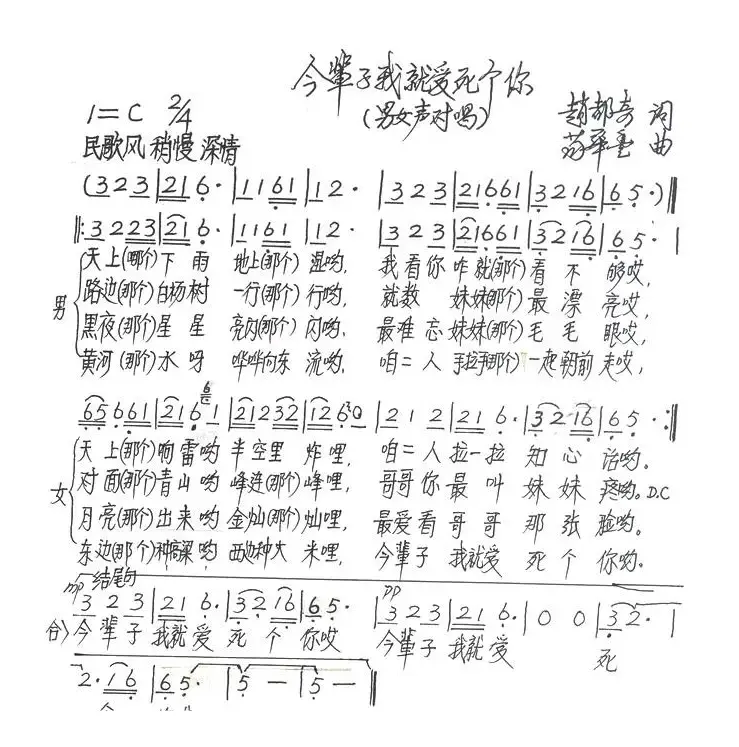 今辈子我就爱死个你
(男女声对唱)
1=C 2/4
赵都奇 词
民歌风 稍慢 深情
曲
(3 2 3 | 2 1 6 · | 1 1 6 1 | 1 2 · | 3 2 3 | 2 1 6 6 1 | 3 2 1 6 | 6 5 · ) ‖
‖: 3 2 2 2 3 | 2 1 6 · | 1 1 6 1 | 1 2 · | 3 2 3 | 2 1 6 6 1 | 3 2 1 6 | 6 5 · |
男
天上(哪个)下雨 地上(那个)湿哟, 我看你咋就(那个)看不够哎,
路边(那个)白杨树 一行(那个)行哟, 就数妹妹(那个)最漂亮哎,
黑夜(那个)星星 亮闪(那个)闪哟, 最难忘妹妹(那个)毛毛眼哎,
黄河(那个)水呀 哗哗向东流哟, 咱二人手拉手(那个)一起朝前走哎,
6 5 6 6 1 | 2 1 6 1 | 2 1 2 3 2 | 1 2 6 | 2 1 2 | 2 1 6 · | 3 2 1 6 | 6 5 · :‖
女
天上(那个)响雷哟 半空里炸哩, 咱二人拉一拉知心话哟。
对面(那个)青山哟 峰连(那个)峰哩, 哥哥你最叫妹妹疼哟。D.C
月亮(那个)出来哟 金灿(那个)灿哩, 最爱看哥哥那张脸哟。
东边(那个)种高粱哟 西边种大米哩, 今辈子我就爱死个你哟。
mp 结尾句 pp
3 2 3 | 2 1 6 · | 3 2 1 6 | 6 5 · | 3 2 3 | 2 1 6 · | 0 0 | 3 2 · |
合) 今辈子我就爱死个你哎 今辈子我就爱 死
2 · 1 6 | 6 5 · | 5 — | 5 — ‖